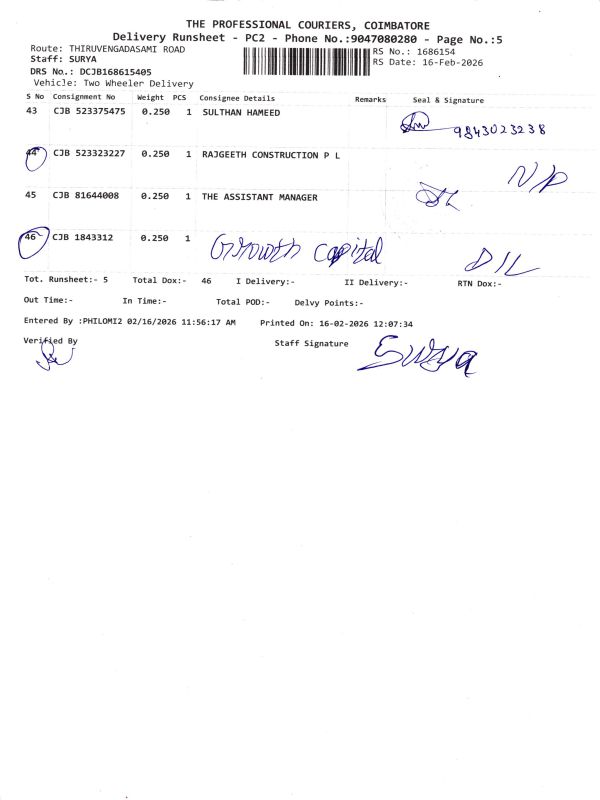 THE PROFESSIONAL COURIERS, COIMBATORE
Delivery Runsheet - PC2 - Phone No.:9047080280 - Page No.:5
Route: THIRUVENGADASAMI ROAD RS No.: 1686154
Staff: SURYA RS Date: 16-Feb-2026
DRS No.: DCJB168615405
Vehicle: Two Wheeler Delivery
S No Consignment No Weight PCS Consignee Details Remarks Seal & Signature
43 CJB 523375475 0.250 1 SULTHAN HAMEED 9843023238
44 CJB 523323227 0.250 1 RAJGEETH CONSTRUCTION P L N/P
45 CJB 81644008 0.250 1 THE ASSISTANT MANAGER
46 CJB 1843312 0.250 1 Growth capital D/L
Tot. Runsheet:- 5 Total Dox:- 46 I Delivery:- II Delivery:- RTN Dox:-
Out Time:- In Time:- Total POD:- Delvy Points:-
Entered By :PHILOMI2 02/16/2026 11:56:17 AM Printed On: 16-02-2026 12:07:34
Verified By Staff Signature Surya